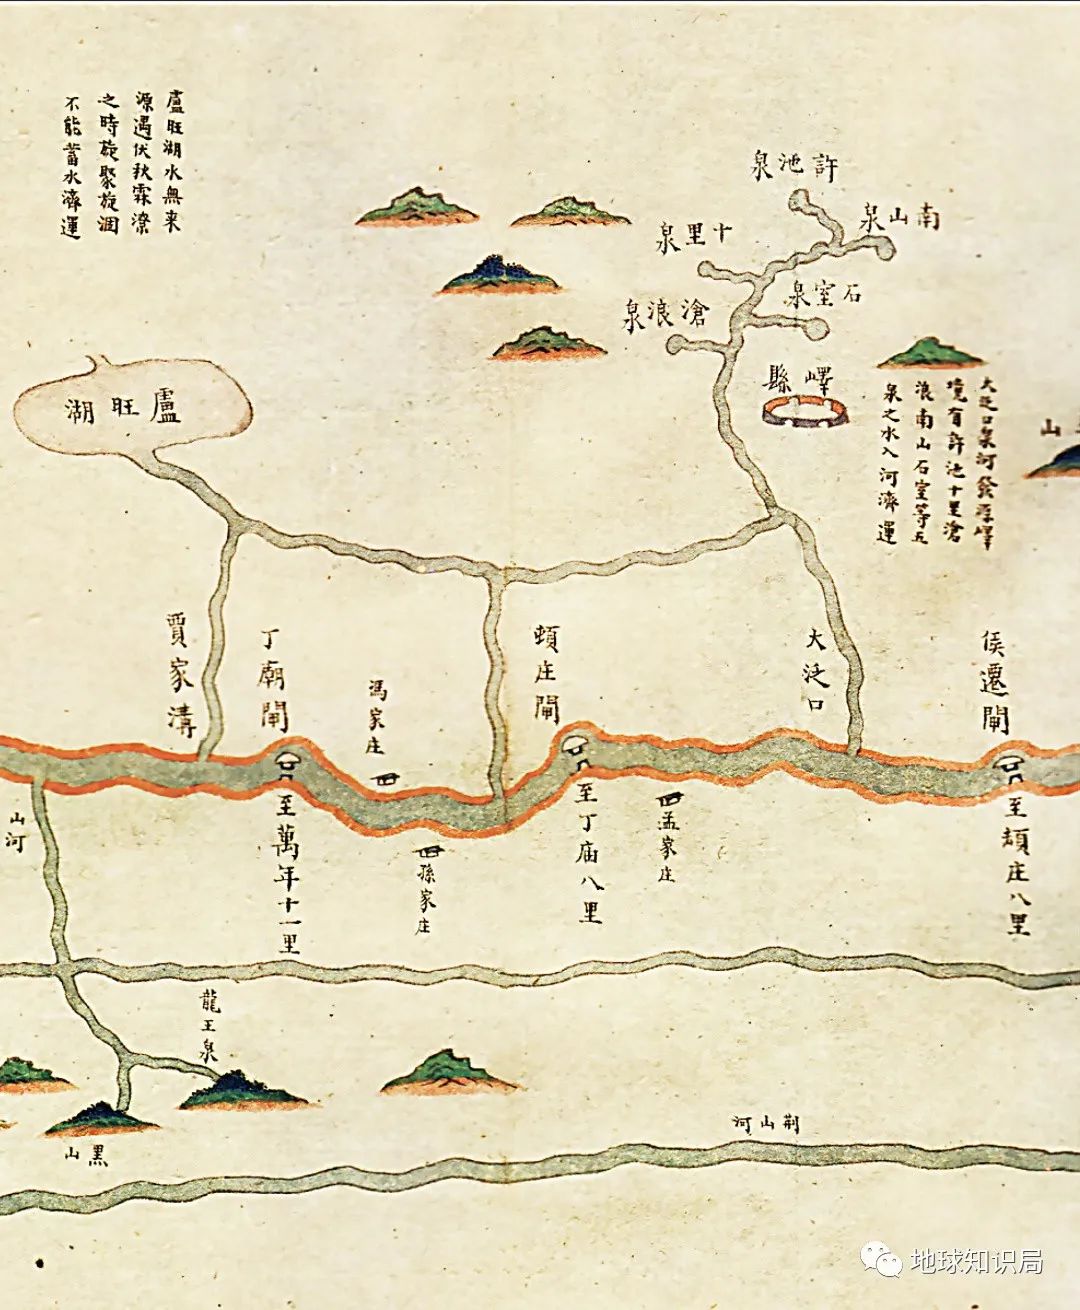 盧旺湖水無来
源遇伏秋霖潦
之時旋聚旋涸
不能蓄水濟運
許池泉
南山泉
十里泉
石室泉
滄浪泉
嶧縣
盧旺湖
大泛口泉河發源嶧
境有許池十里滄
浪南山石室等五
泉之水入河濟運
山
賈家溝
丁廟閘
馮家庄
頓庄閘
大泛口
侯遷閘
山河
至萬年十一里
孫家庄
至丁庙八里
孟家庄
至頓庄八里
龍王泉
黑山
荆山河
地球知识局